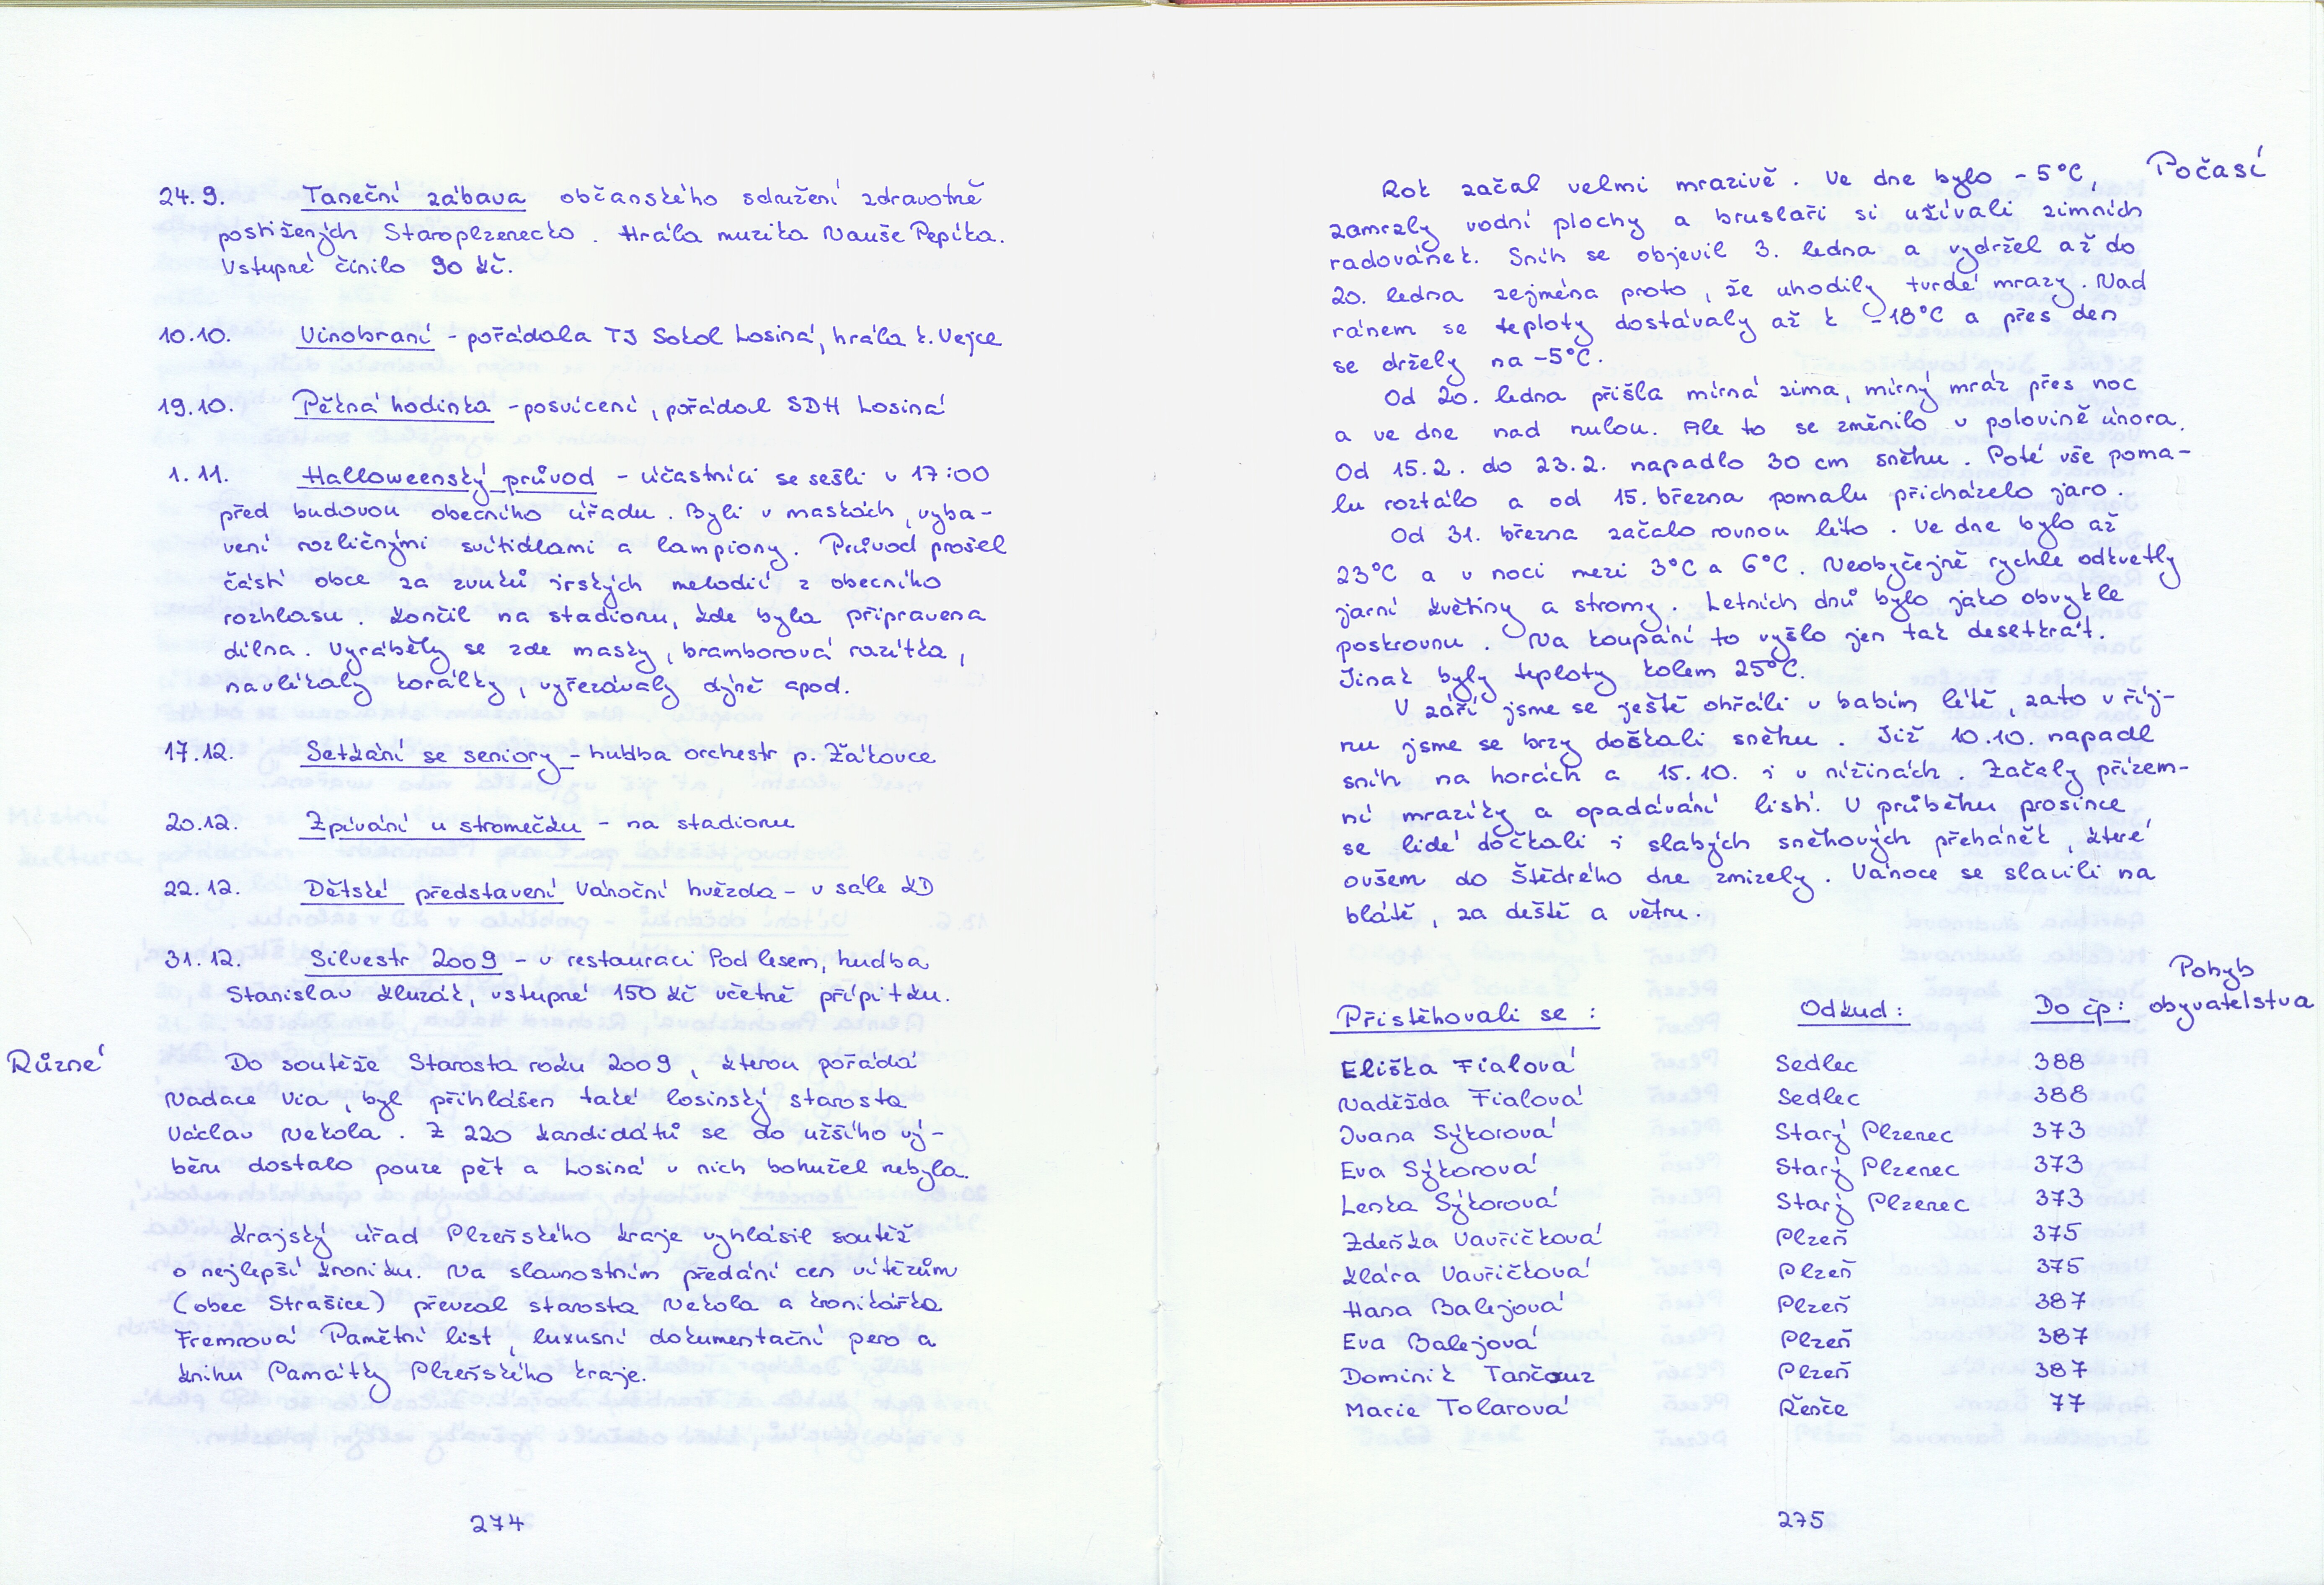 24.9. Taneční zábava občanského sdružení zdravotně
postižených Staroplzenecko. Hrála muzika Nauše Pepíka.
Vstupné činilo 90 Kč.
10.10. Vinobraní - pořádala TJ Sokol Losiná, hrála k. Vejce
19.10. Pěkná hodinka - posvícení, pořádal SDH Losiná
1.11. Halloweenský průvod - účastníci se sešli v 17:00
před budovou obecního úřadu. Byli v maskách, vyba-
veni rozličnými svítidlami a lampiony. Průvod prošel
částí obce za zvuků irských melodií z obecního
rozhlasu. Končil na stadionu, kde byla připravena
dílna. Vyráběly se zde masky, bramborová razítka,
navlékaly korálky, vyřezávaly dýně apod.
17.12. Setkání se seniory - hudba orchestr p. Žákovce
20.12. Zpívání u stromečku - na stadionu
22.12. Dětské představení Vánoční hvězda - v sále KD
31.12. Silvestr 2009 - v restauraci Pod lesem, hudba
Stanislav Kluzák, vstupné 150 Kč včetně přípitku.
Různé
Do soutěže Starosta roku 2009, kterou pořádá
Nadace Via, byl přihlášen také losinský starosta
Václav Nekola. Z 220 kandidátů se do užšího vý-
běru dostalo pouze pět a Losiná v nich bohužel nebyla.
Krajský úřad Plzeňského kraje vyhlásil soutěž
o nejlepší kroniku. Na slavnostním předání cen vítězům
(obec Strašice) převzal starosta Nekola a kronikářka
Fremrová Pamětní list, luxusní dokumentační pero a
knihu Památky Plzeňského kraje.
274
Počasí
Rok začal velmi mrazivě. Ve dne bylo -5°C,
zamrzly vodní plochy a bruslaři si užívali zimních
radovánek. Sníh se objevil 3. ledna a vydržel až do
20. ledna zejména proto, že uhodily tvrdé mrazy. Nad
ránem se teploty dostávaly až k -18°C a přes den
se držely na -5°C.
Od 20. ledna přišla mírná zima, mírný mráz přes noc
a ve dne nad nulou. Ale to se změnilo v polovině února.
Od 15.2. do 23.2. napadlo 30 cm sněhu. Poté vše poma-
lu roztálo a od 15. března pomalu přicházelo jaro.
Od 31. března začalo rovnou léto. Ve dne bylo až
23°C a v noci mezi 3°C a 6°C. Neobyčejně rychle odkvetly
jarní květiny a stromy. Letních dnů bylo jako obvykle
poskrovnu. Na koupání to vyšlo jen tak desetkrát.
Jinak byly teploty kolem 25°C.
V září jsme se ještě ohřáli v babím létě, zato v říj-
nu jsme se brzy dočkali sněhu. Již 10.10. napadl
sníh na horách a 15.10. i v nížinách. Začaly přízem-
ní mrazíky a opadávání listí. V průběhu prosince
se lidé dočkali i slabých sněhových přeháněk, které
ovšem do Štědrého dne zmizely. Vánoce se slavili na
blátě, za deště a větru.
Pohyb
obyvatelstva
Přistěhovali se: Odkud: Do čp:
Eliška Fialová Sedlec 388
Naděžda Fialová Sedlec 388
Ivana Sýkorová Starý Plzenec 373
Eva Sýkorová Starý Plzenec 373
Lenka Sýkorová Starý Plzenec 373
Zdeňka Vavřičková Plzeň 375
Klára Vavřičková Plzeň 375
Hana Balejová Plzeň 387
Eva Balejová Plzeň 387
Dominik Tančouz Plzeň 387
Marie Tolarová Řenče 77
275